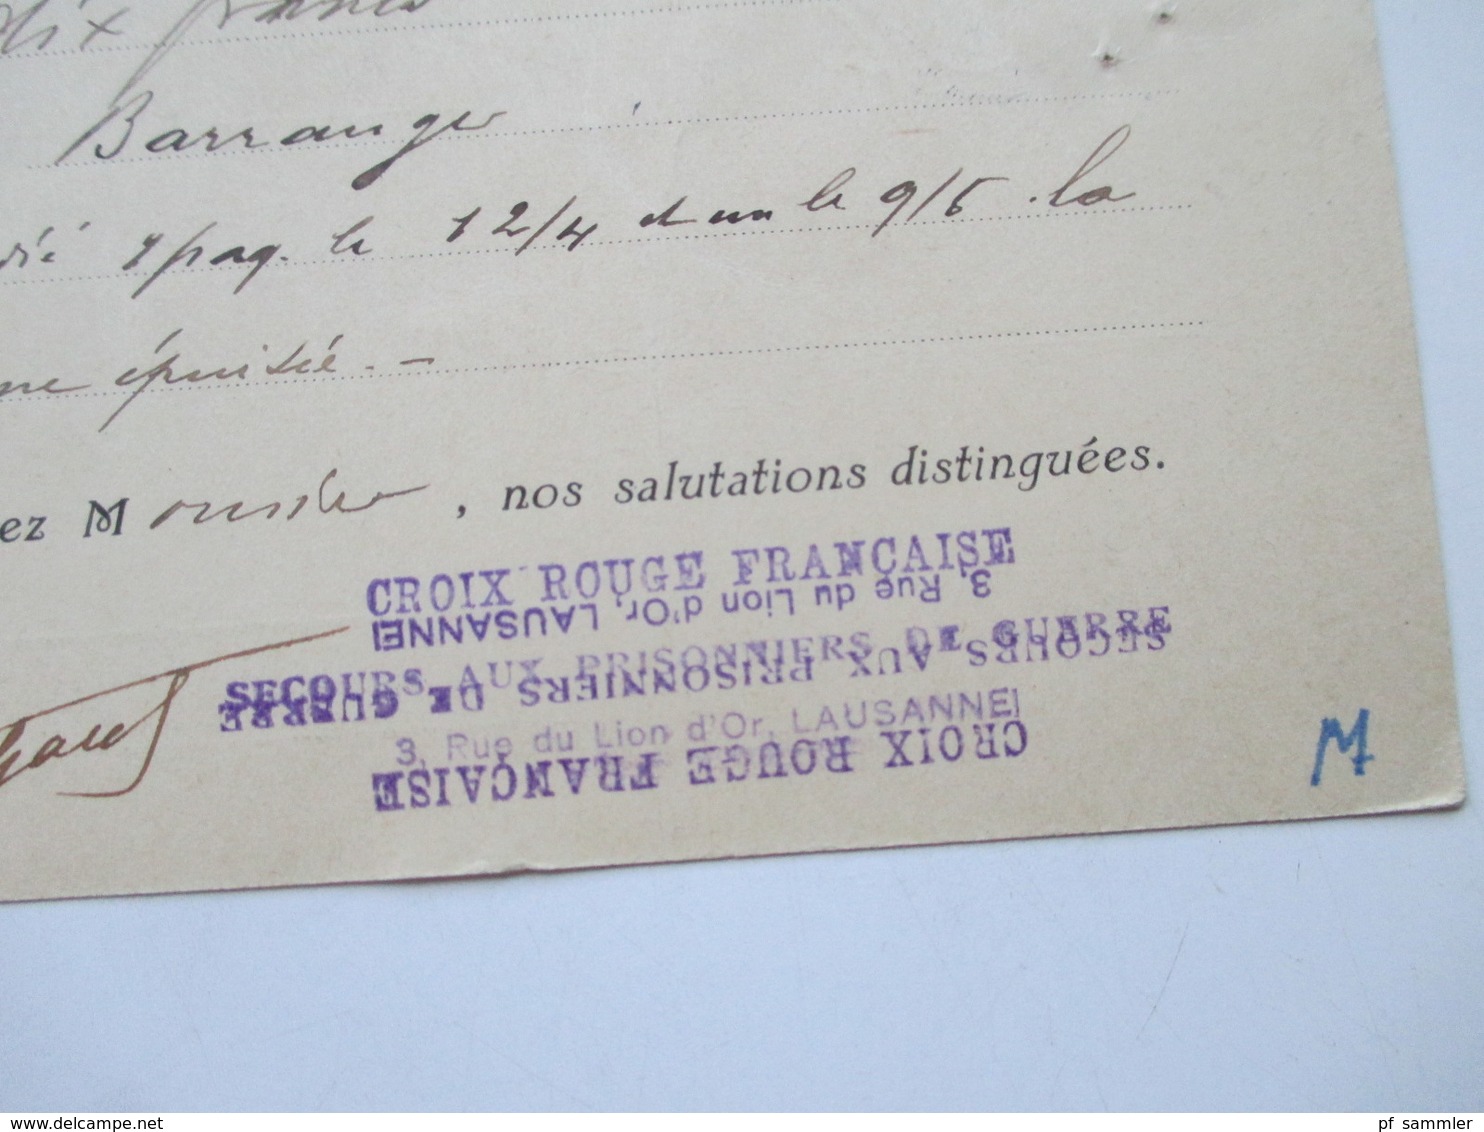 dix francs
Barranger
dié 1 paq. le 12/4 et un le 9/5. la
me épuisée. -
ez Monsieur, nos salutations distinguées.
CROIX ROUGE FRANÇAISE
3, Rue du Lion d'Or, LAUSANNE
SECOURS AUX PRISONNIERS DE GUERRE
SECOURS AUX PRISONNIERS DE GUERRE
3, Rue du Lion d'Or, LAUSANNE
CROIX ROUGE FRANÇAISE
M
www.delcampe.net
pf_sammler